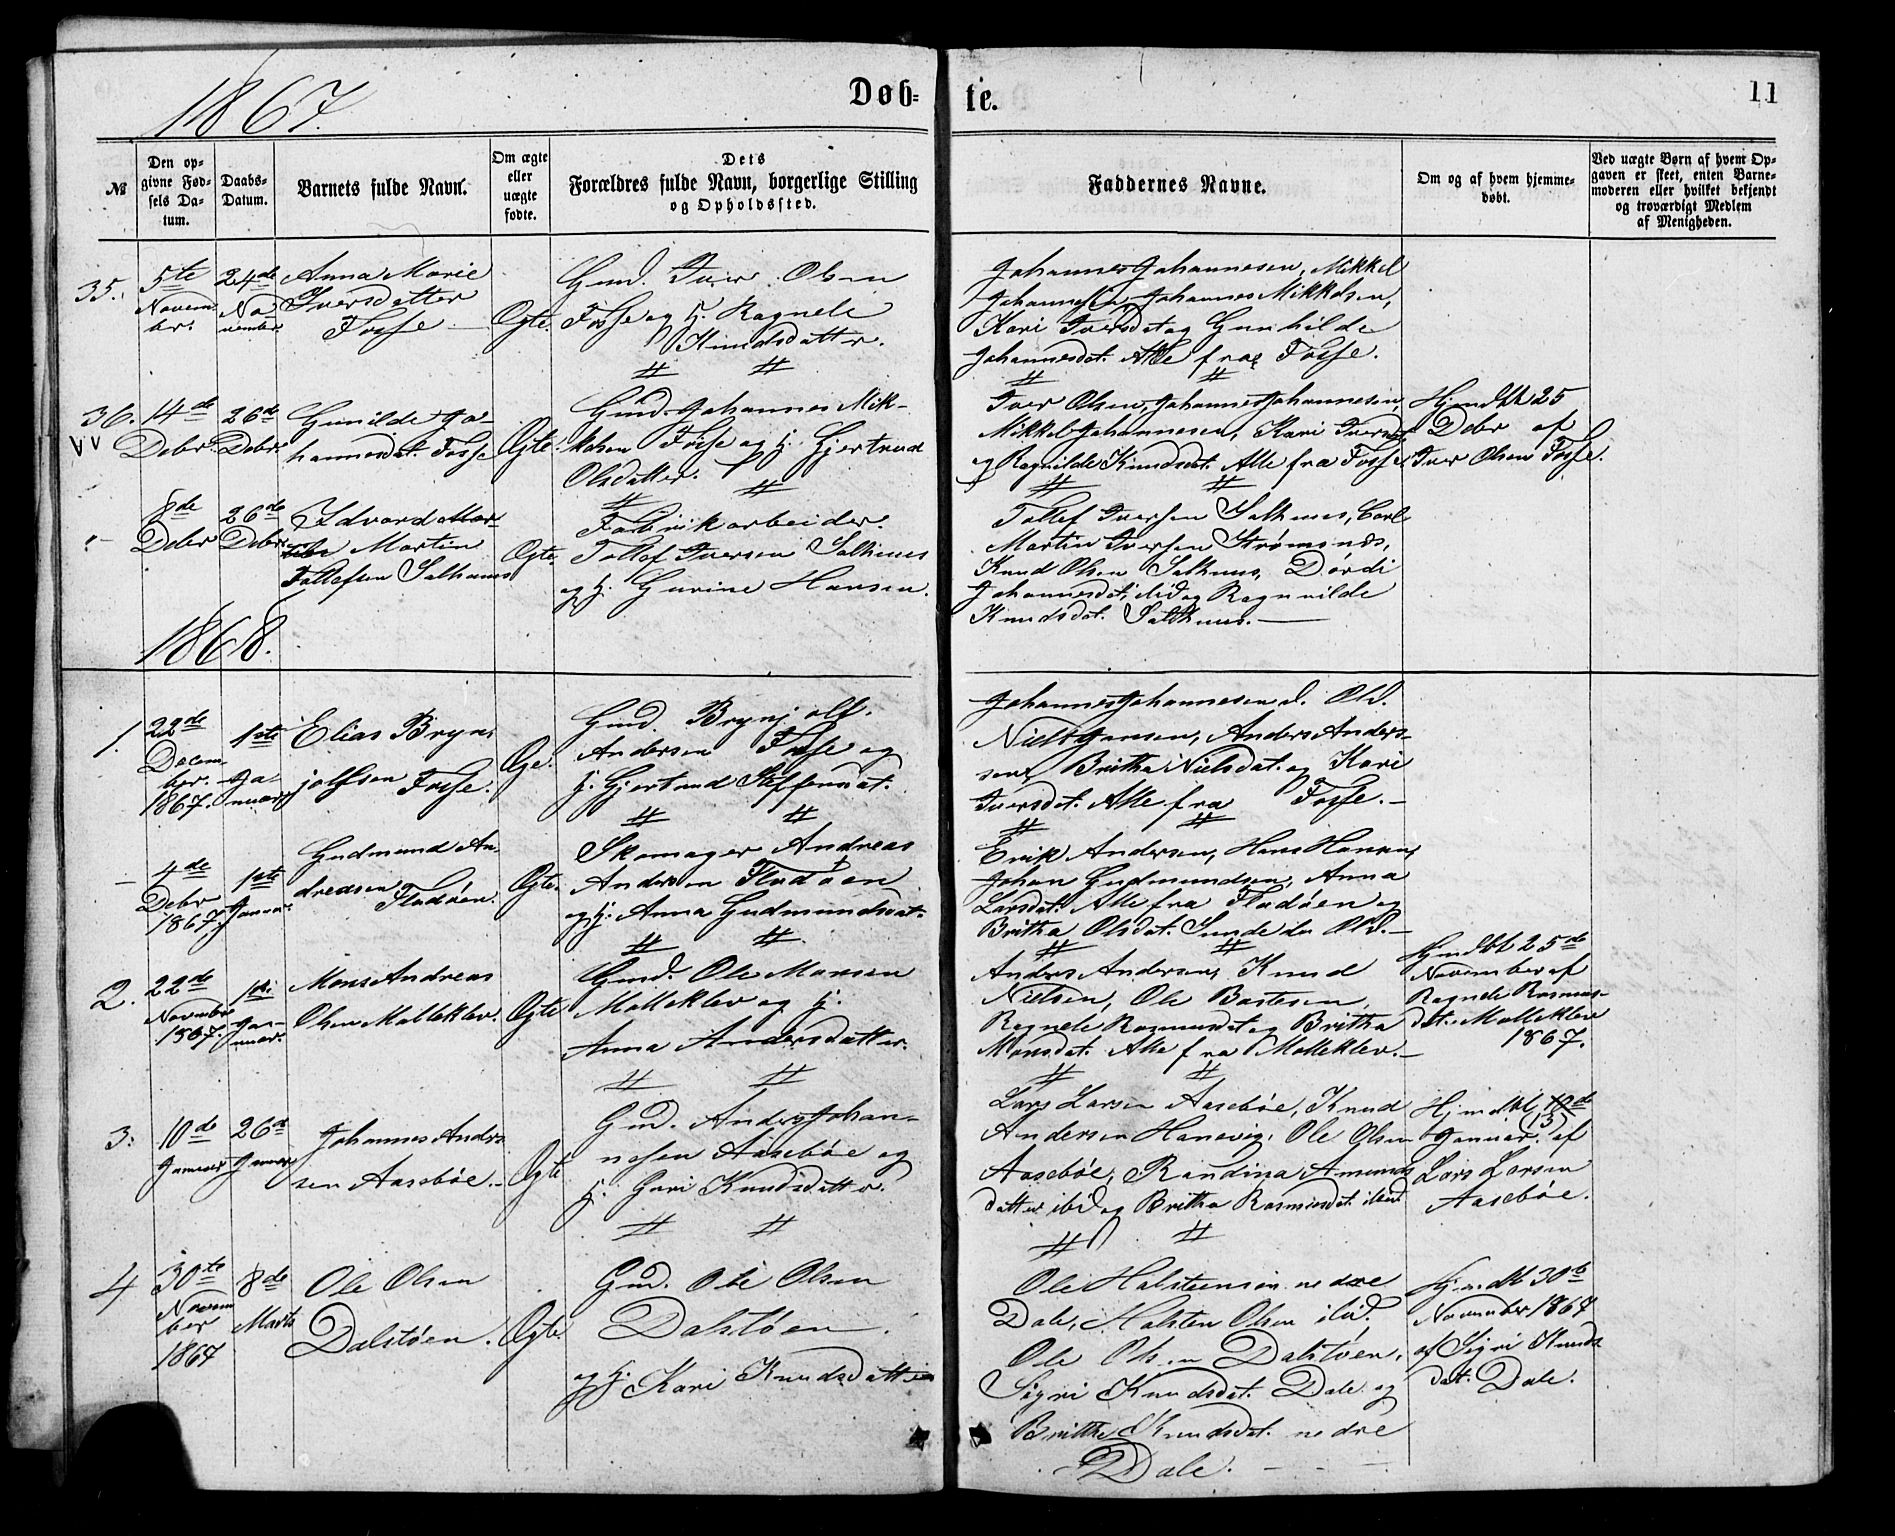 1867.
Døb-
te.
11
№
Den op-
givne Fød-
sels Da-
tum.
Daabs-
Datum.
Barnets fulde Navn.
Om ægte
eller
uægte
fødte.
Dets
Forældres fulde Navn, borgerlige Stilling
og Opholdssted.
Faddernes Navne.
Om og af hvem hjemme-
døbt.
Ved uægte Børn af hvem Op-
gaven er skeet, enten Barne-
moderen eller hvilket bekjendt
og troværdigt Medlem
af Menigheden.
35.
5te
Novem-
ber.
24de
No-
vember.
Anna Marie
Iversdatter
Fosse
Ægte.
Gmd. Iver Olsen
Fosse og H. Ragnele
Knudsdatter.
Johannes Johannesen, Mikkel
Johannesen, Johannes Mikkelsen,
Kari Iversdat og Gunhilde
Johannesdat. Alle fra Fosse.
36.
14de
Debr.
26de
Debr.
Gunilde Jo-
hannesdat. Fosse
Ægte.
Gmd. Johannes Mik-
kelsen Fosse og H. Gjertrud
Olsdatter.
Iver Olsen, Johannes Johannesen,
Mikkel Johannesen, Kari Iversdat.
og Ragnilde Knudsdat. Alle fra Fosse.
Hjmdbt 25
Debr af
Iver Olsen Fosse.
8de
Debr
26de
Debr.
Edvard Mar-
Martin
Tollefsen Salhuus
Ægte.
Fabrikarbeider.
Tollef Iversen Salhuus
og H. Gurine Hansen.
Tollef Iversen Salhuus, Carl
Martin Iversen Strømsnes,
Knud Olsen Salhuus, Dordi
Johannesdat. ibid og Ragnilde
Knudsdat. Salhuus.
1868.
1.
22de
Decem-
ber.
1867.
1ste
Ja-
nuar.
Elias Bryn-
jolfsen Fosse.
Æge.
Gmd. Brynjolf
Andersen Fosse og
H. Gjertrud Steffensdat.
Johannes Johannesen d. Old.
Niels Jansen, Anders Anders-
sen, Britha Nielsdat. og Kari
Iversdat. Alle fra Fosse.
4de
Debr
1867.
1ste
Januar.
Gudmund An-
dreasen
Fladøen.
Ægte.
Skomager Andreas
Andersen Fladøen
og H. Anna Gudmundsdat.
Erik Andersen, Hans Hansen,
Johan Gudmundsen, Anna
Larsdat. Alle fra Fladøen og
Britha Olsdat. Sunde
2.
22de
November
1867.
1ste
Jan-
nuar.
Mons Andreas
Olsen Molleklev.
Ægte
Gmd. Ole Monsen
Molleklev og H.
Anna Andersdatter.
Anders Andersen, Knud
Nielsen, Ole Bastesen,
Ragnele Rasmusdat og Britha
Monsdat. Alle fra Molleklev.
Hjmdbt 25de
November af
Ragnele Rasmus-
dat. Molleklev
1867.
3.
10de
Januar
26de
Januar
Johannes Anders-
sen Aasebøe.
Ægte
Gmd. Anders Johan-
nesen Aasebøe og
H. Guri Knudsdatter.
Lars Larsen Aasebøe, Knud
Andersen Hanevig, Ole Olsen
Aasebøe, Randina Amunds-
datter ibid og Britha Rasmusdat. ibid
Hjmdbt. 10de
13
Januar. af
Lars Larsen
Aasebøe.
4
30te
Novem-
ber
1867
8de
Marts
Ole Olsen
Dalstøen.
Ægte.
Gmd. Ole Olsen
Dalstøen.
og H. Kari Knudsdatter
Ole Halsteensen nedre
Dale, Halsten Olsen ibid.
Ole Olsen Dalstøen,
Sigri Knudsdat. Dale og
Britha Knudsdat. nedre
Dale.
Hjmdbt 30te
November 1867
af Sigri Knuds
dat. Dale.